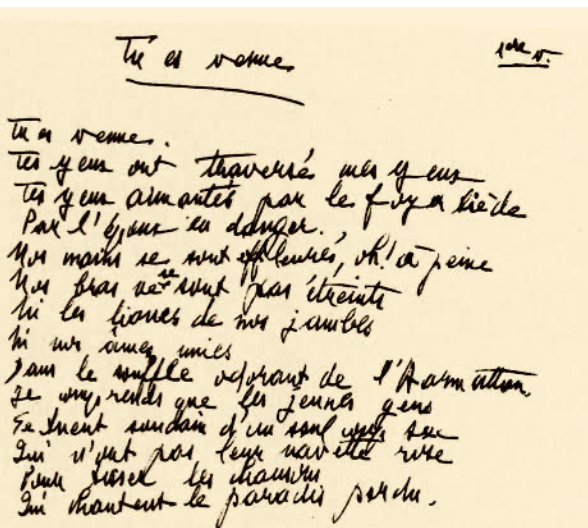 Tu es venue
1ère v.
Tu es venue.
Tes yeux ont traversés mes yeux
Tes yeux aimantés par le foyer tiède
Par l'époux en danger.
Nos mains se sont effleurés, oh! à peine
Nos bras ne se sont pas étreints
Ni les lianes de nos jambes
Ni nos âmes unies
Dans le souffle odorant de l'Harmattan.
Je comprends que les jeunes gens
Se tuent soudain d'un seul coup sec
Qui n'ont pas leur navette rose
Pour tisser les chansons
Qui chantent le paradis perdu.